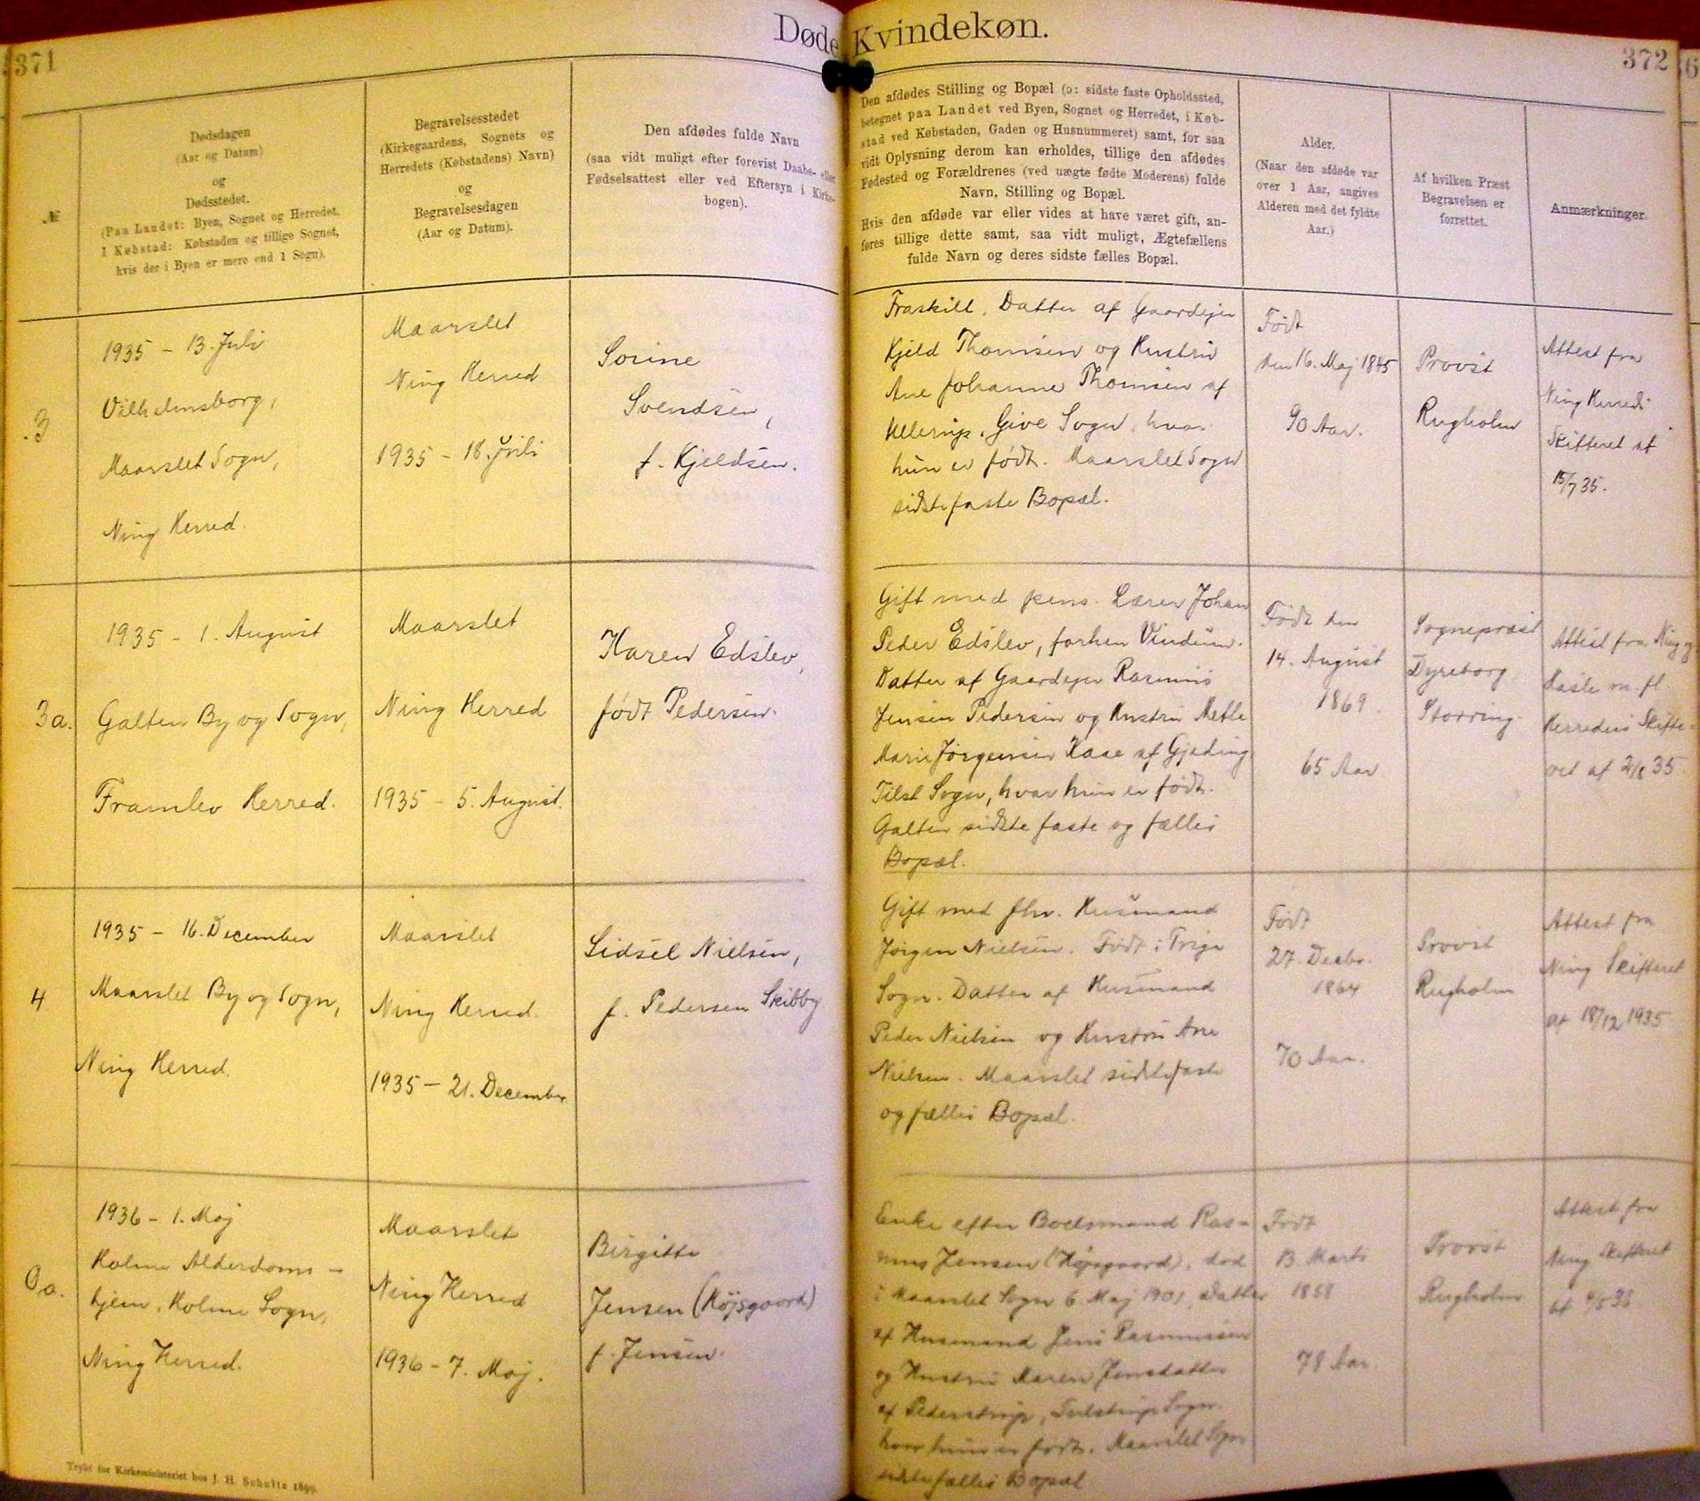 371
Døde Kvindekøn.
372
№
Dødsdagen
(Aar og Datum)
og
Dødsstedet.
(Paa Landet: Byen, Sognet og Herredet.
I Købstad: Købstaden og tillige Sognet,
hvis der i Byen er mere end 1 Sogn).
Begravelsesstedet
(Kirkegaardens, Sognets og
Herredets (Købstadens) Navn)
og
Begravelsesdagen
(Aar og Datum).
Den afdødes fulde Navn
(saa vidt muligt efter forevist Daabs- eller
Fødselsattest eller ved Eftersyn i Kirke-
bogen).
Den afdødes Stilling og Bopæl (ɔ: sidste faste Opholdssted,
betegnet paa Landet ved Byen, Sognet og Herredet, i Køb-
stad ved Købstaden, Gaden og Husnummeret) samt, for saa
vidt Oplysning derom kan erholdes, tillige den afdødes
Fødested og Forældrenes (ved uægte fødte Moderens) fulde
Navn, Stilling og Bopæl.
Hvis den afdøde var eller vides at have været gift, an-
føres tillige dette samt, saa vidt muligt, Ægtefællens
fulde Navn og deres sidste fælles Bopæl.
Alder.
(Naar den afdøde var
over 1 Aar, angives
Alderen med det fyldte
Aar.)
Af hvilken Præst
Begravelsen er
forrettet.
Anmærkninger.
3
1935 – 13. Juli
Vilhelmsborg,
Maarslet Sogn,
Ning Herred.
Maarslet
Ning Herred
1935 – 18. Juli
Sorine
Svendsen,
f. Kjeldsen.
Fraskilt. Datter af Gaardejer
Kjeld Thomsen og Hustru
Ane Johanne Thomsen af
Ullerup, Give Sogn, hvor
hun er født. Maarslet Sogn
sidste faste Bopæl.
Født
den 16. Maj 1845
90 Aar.
Provst
Rugholm
Attest fra
Ning Herreds
Skifteret af
15/7 35.
3a.
1935 – 1. August
Galten By og Sogn,
Framlev Herred.
Maarslet
Ning Herred
1935 – 5. August.
Karen Edslev,
født Pedersen.
Gift med pens. Lærer Johan
Peder Edslev, forhen Vindum.
Datter af Gaardejer Rasmus
Jensen Pedersen og Hustru Mette
Marie Jørgensen Kaae af Gjeding
Tilst Sogn, hvor hun er født.
Galten sidste faste og fælles
Bopæl.
Født den
14. August
1869.
65 Aar
Sognepræst
Dyreborg
Storring.
Attest fra Ning og
Hasle m. fl.
Herreders Skifte-
ret af 2/8 35.
4
1935 – 16. December
Maarslet By og Sogn,
Ning Herred.
Maarslet
Ning Herred.
1935 – 21. December
Sidsel Nielsen,
f. Pedersen Skibby
Gift med fhv. Husmand
Jørgen Nielsen. Født i Trige
Sogn. Datter af Husmand
Peder Nielsen og Hustru Ane
Nielsen. Maarslet sidste faste
og fælles Bopæl.
Født
27. Decbr.
1864
70 Aar.
Provst
Rugholm
Attest fra
Ning Skifteret
af 18/12 1935
1936 – 1. Maj
Holme Alderdoms-
hjem, Holme Sogn,
Ning Herred.
Maarslet
Ning Herred
1936 – 7. Maj.
Birgitte
Jensen (Højsgaard)
f. Jensen.
Enke efter Boelsmand Ras-
mus Jensen (Højsgaard), død
i Maarslet Sogn 6. Maj 1901. Datter
af Husmand Jens Rasmussen
og Hustru Maren Jensdatter
af Pederstrup, Tulstrup Sogn.
hvor hun er født. Maarslet Sogn
sidste fælles Bopæl
Født
13. Marts
1858
78 Aar.
Provst
Rugholm
Attest fra
Ning Skifteret
Trykt for Kirkeministeriet hos J. H. Schultz 1899.